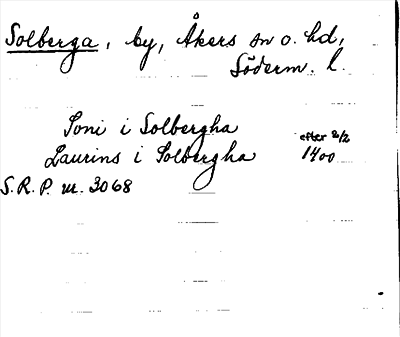 Solberga, by, Åkers sn o. hd,
Söderm. l.
Joni i Solbergha efter 2/2
Laurins i Solbergha 1400
S.R.P. nr. 3068